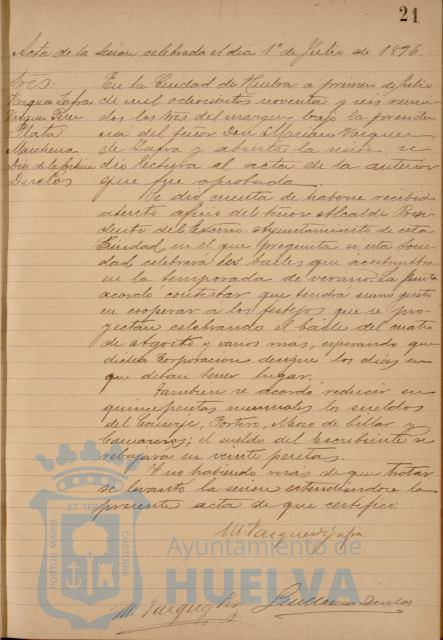 21
Acta de la sesion celebrada el dia 1º de Julio de 1896.
Sres.
Vazquez Zafra
Vazquez Perez
Plata
Marchena
Duclós
En la Ciudad de Huelva a primero de Julio
de mil ochocientos noventa y seis reuni
dos los Sres del margen bajo la presiden
cia del Señor Don Maciano Vazquez
de Zafra y abierta la sesion se
dio lectura al acta de la anterior
que fue aprobada.
Se dió cuenta de haberse recibido
atento oficio del Señor Alcalde Presi
dente del Excmo. Ayuntamiento de esta
Ciudad en el que pregunta si esta Socie
dad celebrará los bailes que acostumbra
en la temporada de verano. La Junta
acordó contestar que tendrá sumo gusto
en cooperar a los festejos que se pro
yectan celebrando el baile del cuatro
de Agosto y varios mas, esperando que
dicha Corporacion designe los dias en
que deban tener lugar.
Tambien se acordó reducir en
quince pesetas mensuales los sueldos
del Conserje, Portero, Mozo de billar y
Camareros; el sueldo del Escribiente se
rebajará en veinte pesetas.
Y no habiendo más de que tratar
se levantó la sesion estendiendose la
presente acta de que certifico.
M. Vazquez de Zafra
M. Vazquez Perez
Guillermo Duclós
ET TERRAE
PORTUS MARIS
CUSTODIA
Ayuntamiento de
HUELVA